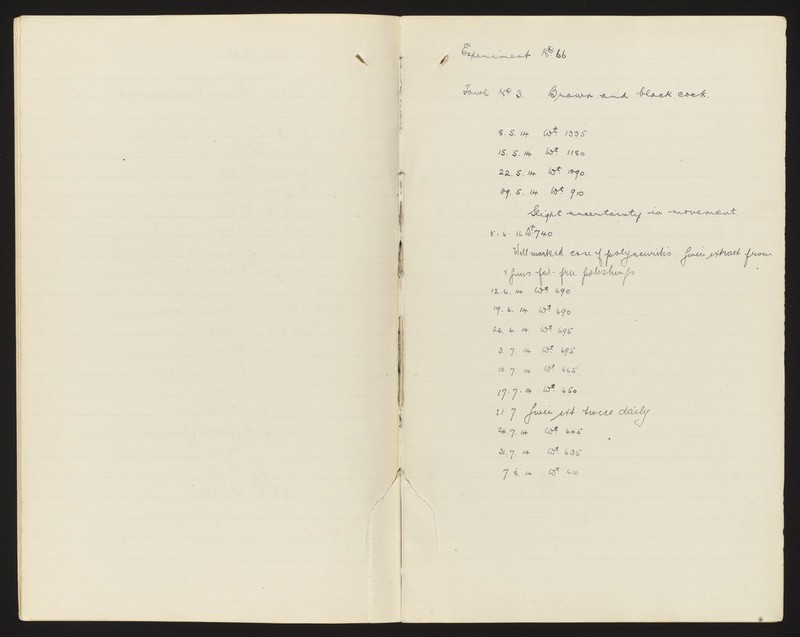 Experiment No 66
Fowl No 3. Brown and black cock.
8. 5. 14 Wt. 1335
15. 5. 14 Wt. 1180
22. 5. 14 Wt. 1090
29. 5. 14 Wt. 910
Slight uncertainty in movement
5. 6. 14 Wt 740
Well marked case of polyneuritis. Given extract from
5 gms fat-free polishings
12. 6. 14 Wt. 690
19. 6. 14 Wt. 690
26. 6. 14 Wt. 695
3. 7. 14 Wt. 695
10. 7. 14 Wt. 665
17. 7. 14 Wt. 650
21. 7 Given ext. twice daily.
24. 7. 14 Wt. 645
31. 7. 14 Wt. 635
7. 8. 14 Wt. 610